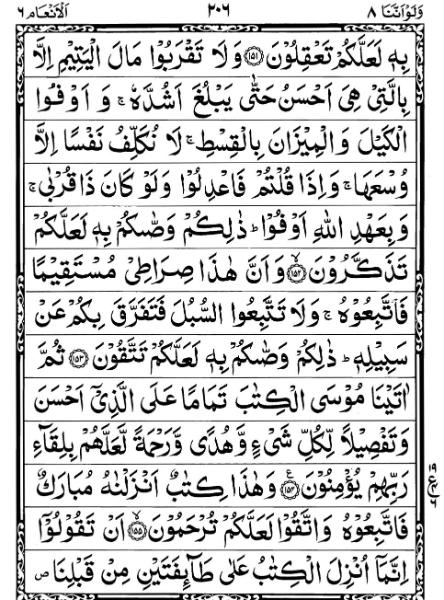 وَلَوْ اَنَّنَا ٨ ٢٠٦ اَلْاَنْعَام ٦
بِهٖ لَعَلَّكُمْ تَعْقِلُوْنَ ﴿۱۵۱﴾ وَلَا تَقْرَبُوْا مَالَ الْيَتِيْمِ اِلَّا
بِالَّتِيْ هِيَ اَحْسَنُ حَتّٰى يَبْلُغَ اَشُدَّهٗ ۚ وَ اَوْفُوا
الْكَيْلَ وَ الْمِيْزَانَ بِالْقِسْطِ ۚ لَا نُكَلِّفُ نَفْسًا اِلَّا
وُسْعَهَا ۚ وَاِذَا قُلْتُمْ فَاعْدِلُوْا وَلَوْ كَانَ ذَا قُرْبٰى ۚ
وَ بِعَهْدِ اللّٰهِ اَوْفُوْا ؕ ذٰلِكُمْ وَصّٰىكُمْ بِهٖ لَعَلَّكُمْ
تَذَكَّرُوْنَ ﴿۱۵۲﴾ وَاَنَّ هٰذَا صِرَاطِيْ مُسْتَقِيْمًا
فَاتَّبِعُوْهُ ۚ وَلَا تَتَّبِعُوا السُّبُلَ فَتَفَرَّقَ بِكُمْ عَنْ
سَبِيْلِهٖ ؕ ذٰلِكُمْ وَصّٰىكُمْ بِهٖ لَعَلَّكُمْ تَتَّقُوْنَ ﴿۱۵۳﴾ ثُمَّ
اٰتَيْنَا مُوْسَى الْكِتٰبَ تَمَامًا عَلَى الَّذِيْٓ اَحْسَنَ
وَتَفْصِيْلًا لِّكُلِّ شَيْءٍ وَّهُدًى وَّرَحْمَةً لَّعَلَّهُمْ بِلِقَآءِ
رَبِّهِمْ يُؤْمِنُوْنَ ﴿۱۵۴﴾ ع وَهٰذَا كِتٰبٌ اَنْزَلْنٰهُ مُبَارَكٌ
فَاتَّبِعُوْهُ وَاتَّقُوْا لَعَلَّكُمْ تُرْحَمُوْنَ ﴿۱۵۵﴾ اَنْ تَقُوْلُوْٓا
اِنَّمَآ اُنْزِلَ الْكِتٰبُ عَلٰى طَآئِفَتَيْنِ مِنْ قَبْلِنَا ص